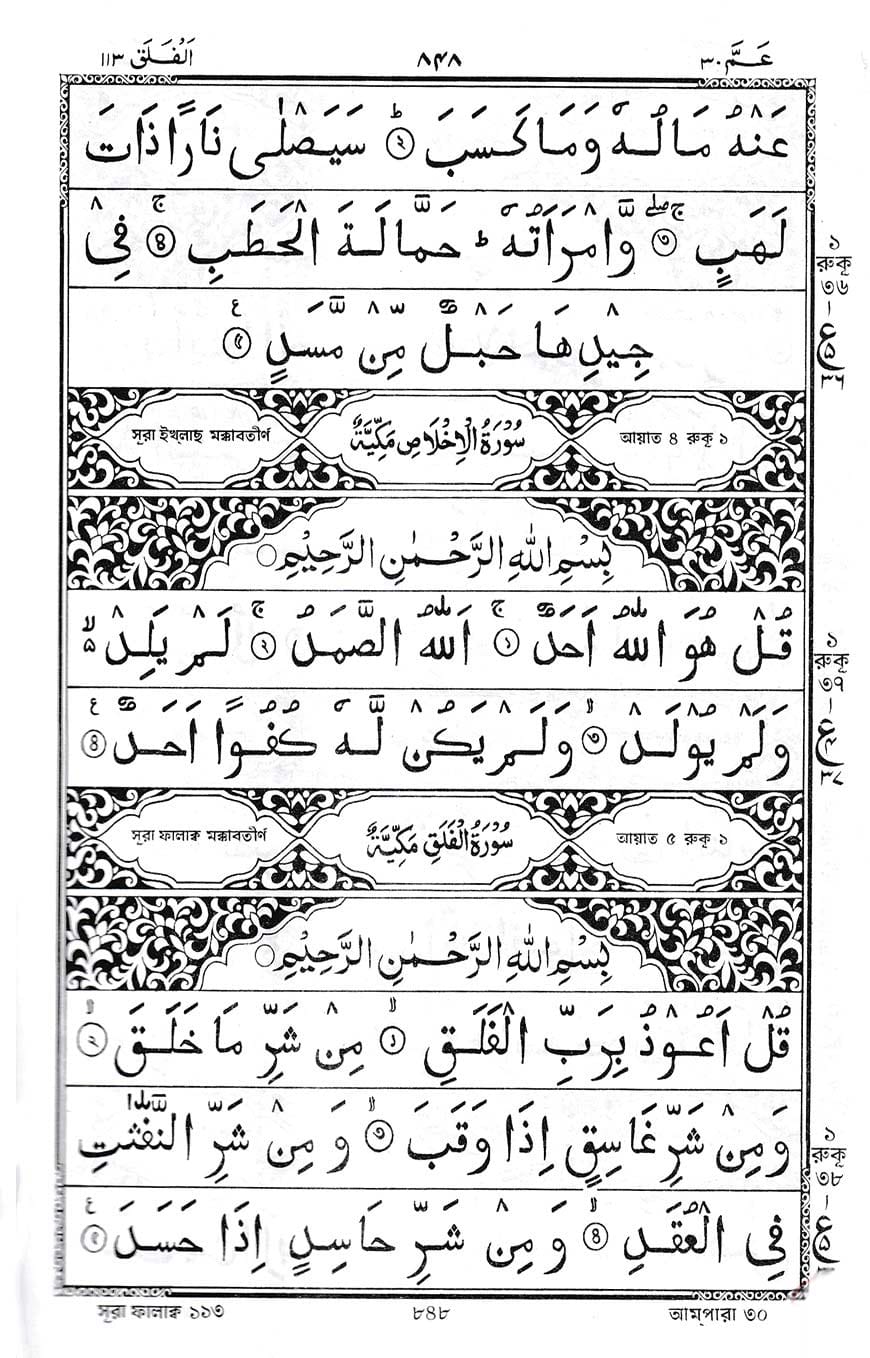 عَـمَّ ٣٠ ٨٤٨ اَلْفَلَق ١١٣
عَنْهُ مَالُهٗ وَمَا كَسَبَ ؕ ② سَيَصْلٰى نَارًا ذَاتَ
لَهَبٍ ۚۖ ③ وَّامْرَاَتُهٗ ؕ حَمَّالَةَ الْحَطَبِ ۚ ④ فِىْ
جِيْدِهَا حَبْلٌ مِّنْ مَّسَدٍ ⑤ ع
১
রুকূ
৩৬
সূরা ইখ্‌লাছ মক্কাবতীর্ণ سُوْرَةُ الْاِخْلَاصِ مَكِّيَّةٌ আয়াত ৪ রুকূ ১
بِسْمِ اللّٰهِ الرَّحْمٰنِ الرَّحِيْمِ
قُلْ هُوَ اللّٰهُ اَحَدٌ ۚ ① اَللّٰهُ الصَّمَدُ ۚ ② لَمْ يَلِدْ ۙ۬
وَلَمْ يُوْلَدْ ۙ ③ وَلَمْ يَكُنْ لَّهٗ كُفُوًا اَحَدٌ ④ ع
১
রুকূ
৩৭
সূরা ফালাক্ব মক্কাবতীর্ণ سُوْرَةُ الْفَلَقِ مَكِّيَّةٌ আয়াত ৫ রুকূ ১
بِسْمِ اللّٰهِ الرَّحْمٰنِ الرَّحِيْمِ
قُلْ اَعُوْذُ بِرَبِّ الْفَلَقِ ۙ ① مِنْ شَرِّ مَا خَلَقَ ۙ ②
وَمِنْ شَرِّ غَاسِقٍ اِذَا وَقَبَ ۙ ③ وَمِنْ شَرِّ النَّفّٰثٰتِ
فِى الْعُقَدِ ۙ ④ وَمِنْ شَرِّ حَاسِدٍ اِذَا حَسَدَ ⑤ ع
১
রুকূ
৩৮
সূরা ফালাক্ব ১১৩ ৮৪৮ আম্‌পারা ৩০